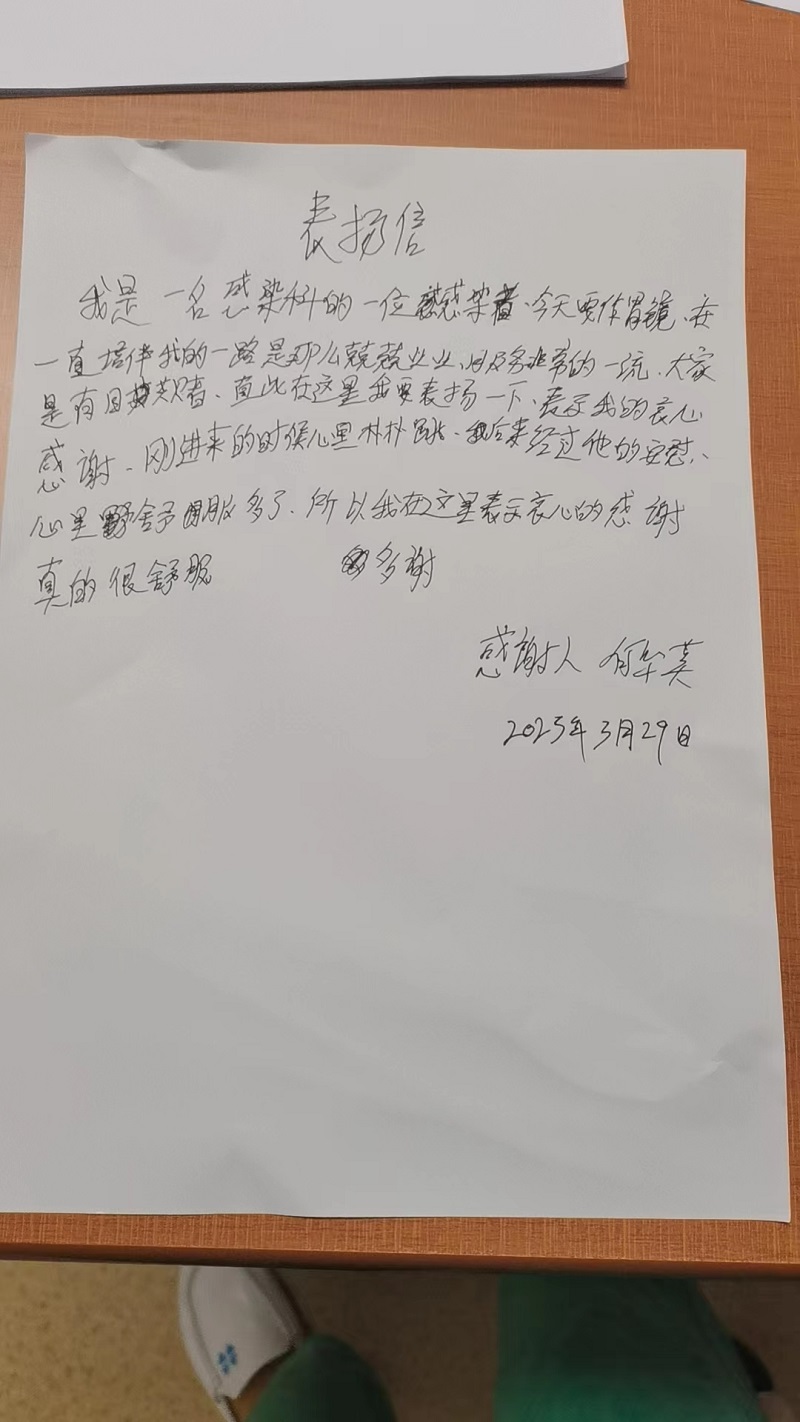 表扬信
我是一名感染科的一位感染者、今天要作胃镜、在
一直培伴我的一路是那么兢兢业业、服务非常的一流、大家
是有目共睹、直此在这里我要表扬一下、表示我的衷心
感谢、刚进来的时候心里朴朴跳、我后来经过他的安慰、
心里舒服多了、所以我在这里表示衷心的感谢
真的很舒服 多谢
感谢人 何华英
2025年3月29日